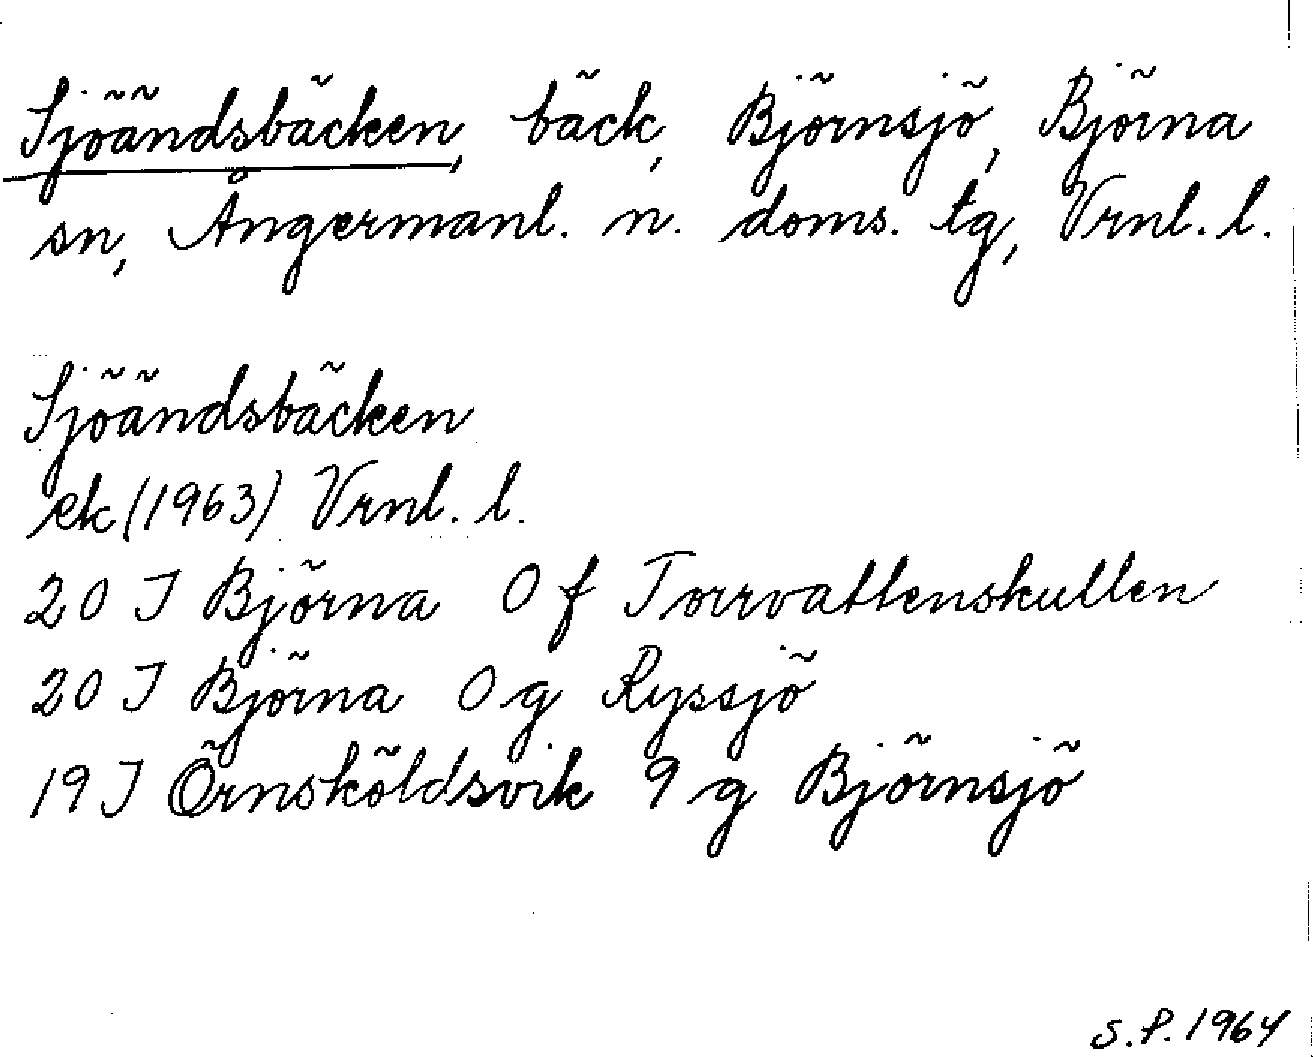 Sjöändsbäcken, bäck, Björnsjö, Björna
sn, Ångermanl. n. doms. tg, Vrnl. l.
Sjöändsbäcken
ek (1963) Vrnl. l.
20 I Björna 0 f Torrvattenskullen
20 I Björna 0 g Ryssjö
19 I Örnsköldsvik 9 g Björnsjö
S.P. 1964